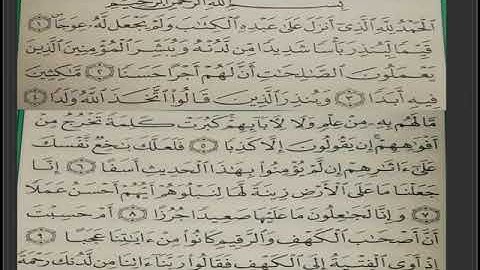 بِسْمِ اللَّهِ الرَّحْمَٰنِ الرَّحِيمِ
الْحَمْدُ لِلَّهِ الَّذِي أَنْزَلَ عَلَىٰ عَبْدِهِ الْكِتَابَ وَلَمْ يَجْعَل لَّهُ عِوَجًا ١
قَيِّمًا لِّيُنذِرَ بَأْسًا شَدِيدًا مِّن لَّدُنْهُ وَيُبَشِّرَ الْمُؤْمِنِينَ الَّذِينَ
يَعْمَلُونَ الصَّالِحَاتِ أَنَّ لَهُمْ أَجْرًا حَسَنًا ٢ مَّاكِثِينَ
فِيهِ أَبَدًا ٣ وَيُنذِرَ الَّذِينَ قَالُوا اتَّخَذَ اللَّهُ وَلَدًا ٤
مَّا لَهُم بِهِ مِنْ عِلْمٍ وَلَا لِآبَائِهِمْ كَبُرَتْ كَلِمَةً تَخْرُجُ مِنْ
أَفْوَاهِهِمْ إِن يَقُولُونَ إِلَّا كَذِبًا ٥ فَلَعَلَّكَ بَاخِعٌ نَّفْسَكَ
عَلَىٰ آثَارِهِمْ إِن لَّمْ يُؤْمِنُوا بِهَٰذَا الْحَدِيثِ أَسَفًا ٦ إِنَّا
جَعَلْنَا مَا عَلَى الْأَرْضِ زِينَةً لَّهَا لِنَبْلُوَهُمْ أَيُّهُمْ أَحْسَنُ عَمَلًا
٧ وَإِنَّا لَجَاعِلُونَ مَا عَلَيْهَا صَعِيدًا جُرُزًا ٨ أَمْ حَسِبْتَ
أَنَّ أَصْحَابَ الْكَهْفِ وَالرَّقِيمِ كَانُوا مِنْ آيَاتِنَا عَجَبًا ٩
إِذْ أَوَى الْفِتْيَةُ إِلَى الْكَهْفِ فَقَالُوا رَبَّنَا آتِنَا مِن لَّدُنكَ رَحْمَةً